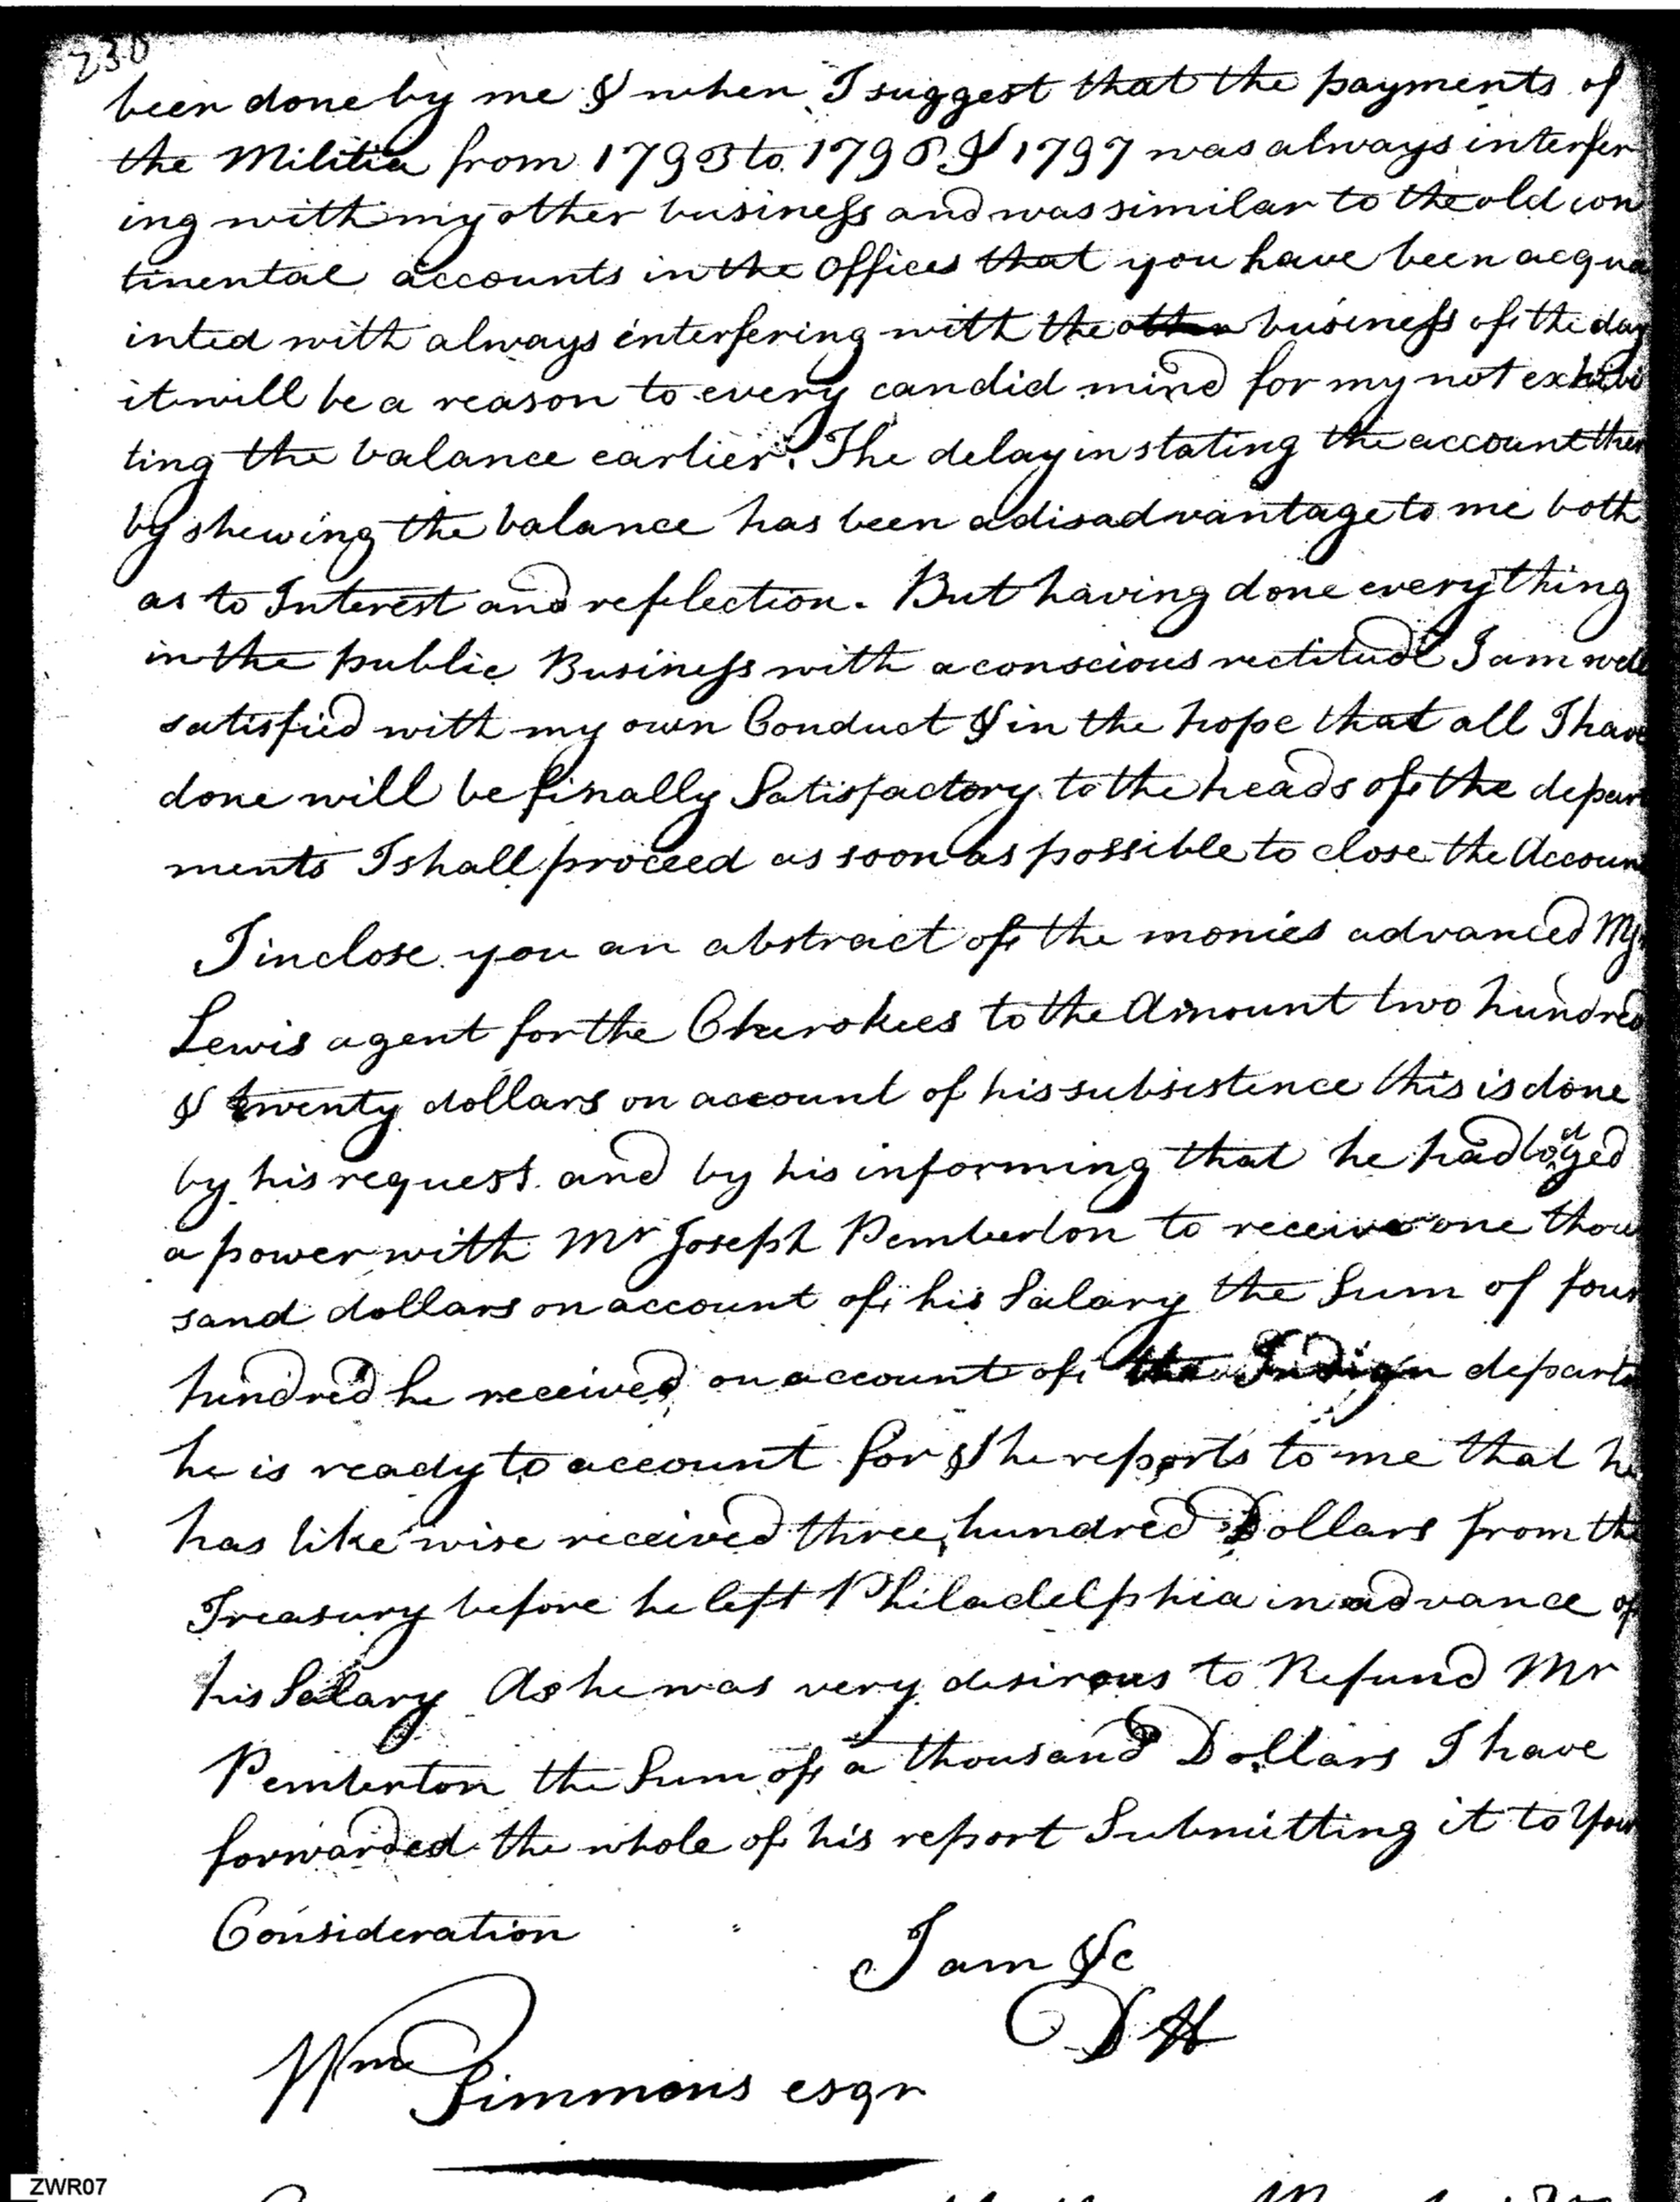 230
been done by me & when I suggest that the payments of
the Militia from 1793 to 1796 & 1797 was always interfer
ing with my other business and was similar to the old con
tinental accounts in the Offices that you have been acqua
inted with always interfering with the other business of the day
it will be a reason to every candid mind for my not exhibi
ting the balance earlier. The delay in stating the account ther
by shewing the balance has been a disadvantage to me both
as to Interest and reflection. But having done every thing
in the public Business with a conscious rectitude I am well
satisfied with my own Conduct & in the hope that all I have
done will be finally Satisfactory to the heads of the depart
ments I shall proceed as soon as possible to close the Accoun
I inclose you an abstract of the monies advanced
Lewis agent for the Cherokees to the Amount two hundred
& twenty dollars on account of his subsistence this is done
by his request and by his informing that he had lodged
a power with Mr Joseph Pemberton to receive one thou
sand dollars on account of his Salary the Sum of four
hundred he received on account of the Indian depart
he is ready to account for & he reports to me that he
has like wise received three hundred Dollars from the
Treasury before he left Philadelphia in advance of
his Salary As he was very desirous to Refund Mr
Pemberton the Sum of a thousand Dollars I have
forwarded the whole of his report Submitting it to Your
Consideration
I am &c
D H
Wm Simmons esqr
ZWR07